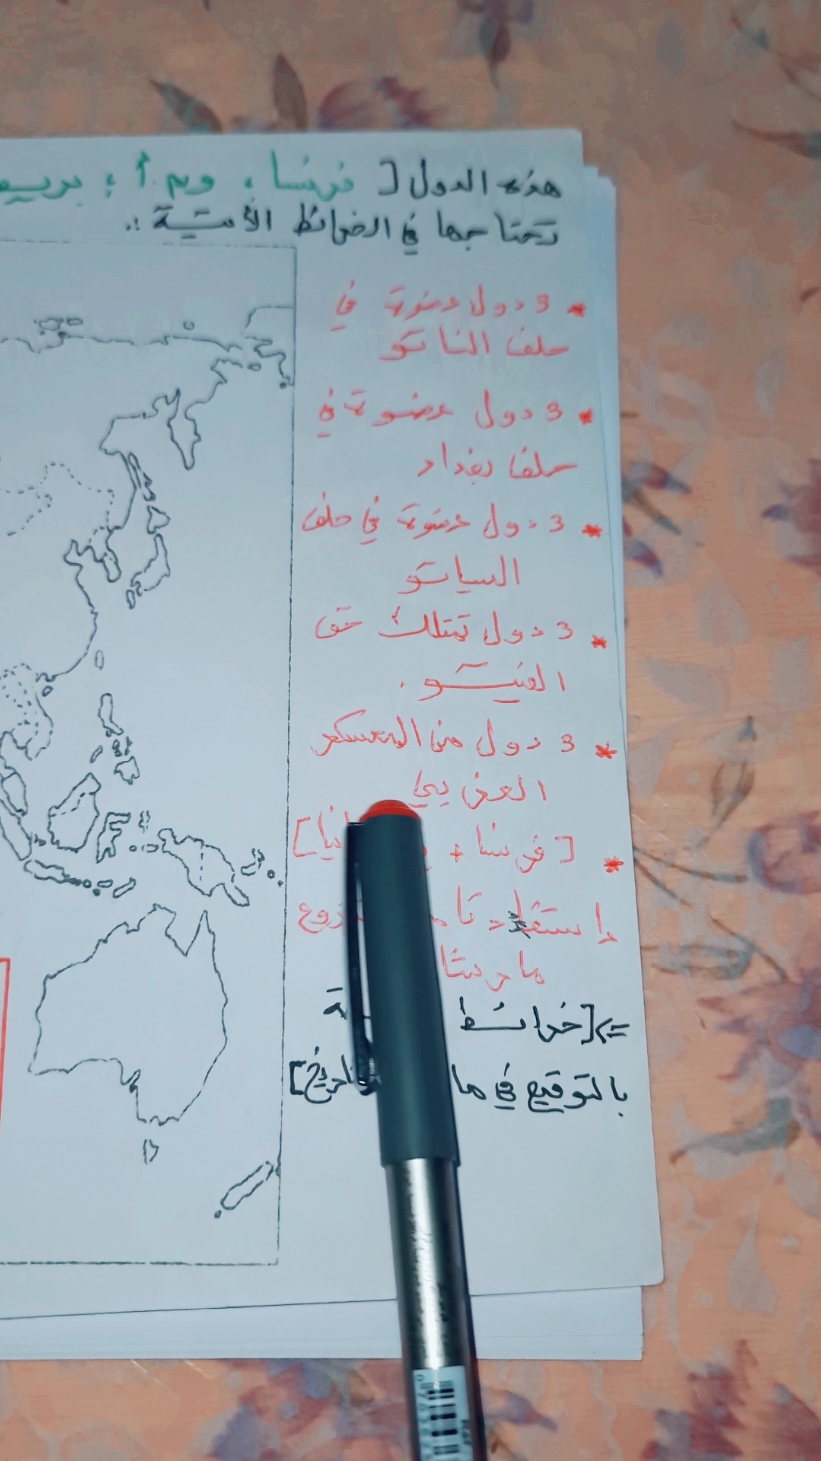 هذه الدول [ فرنسا ، و م أ ؛ بريط
تحتاجها في الخرائط الآتية :.
* 3 دول عضوة في
حلف الناتو
* 3 دول عضوة في
حلف بغداد
* 3 دول عضوة في حلف
السياتو
* 3 دول تمتلك حق
الفيتو .
* 3 دول من المعسكر
الغربي
* [ فرنسا + نيا ]
إستفادتا روع
مارشا
=> [ خرائط ة
بالتوقيع في ما اريخ ]